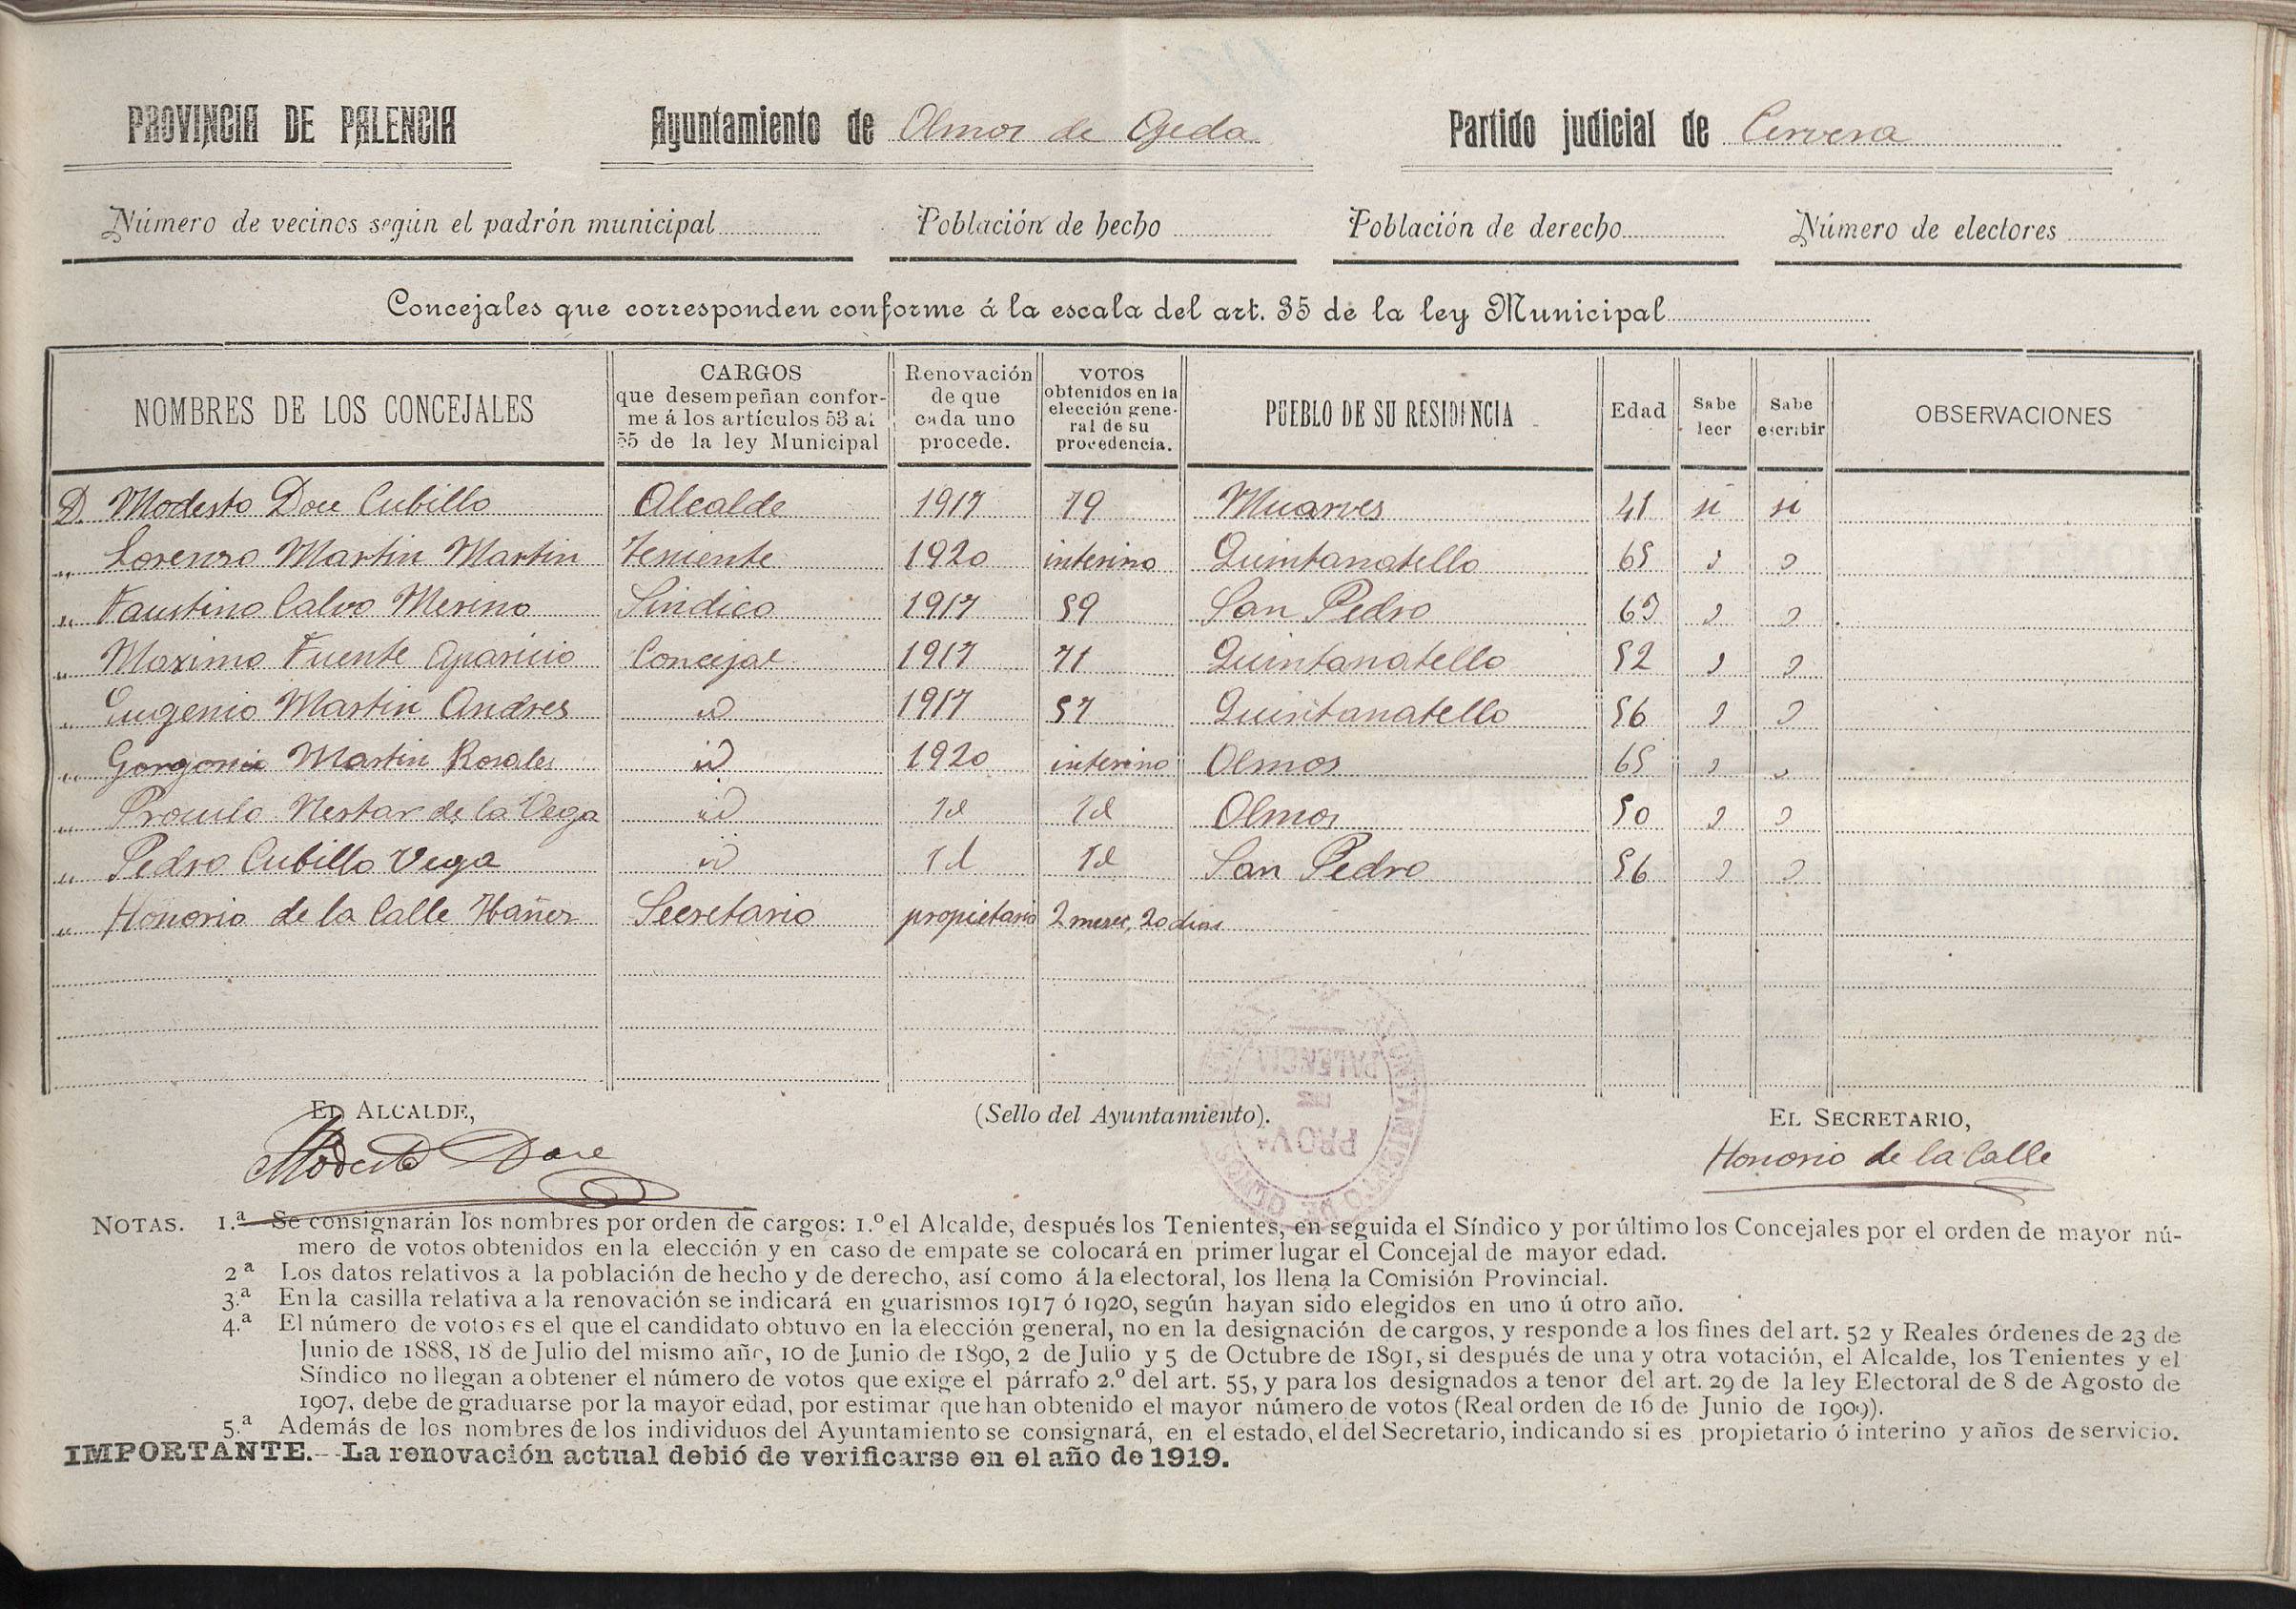 PROVINCIA DE PALENCIA Ayuntamiento de Olmos de Ojeda Partido judicial de Cervera
Número de vecinos según el padrón municipal Población de hecho Población de derecho Número de electores
Concejales que corresponden conforme á la escala del art. 35 de la ley Municipal
NOMBRES DE LOS CONCEJALES
CARGOS
que desempeñan confor-
me á los artículos 53 al
55 de la ley Municipal
Renovación
de que
cada uno
procede.
VOTOS
obtenidos en la
elección gene-
ral de su
procedencia.
PUEBLO DE SU RESIDENCIA
Edad
Sabe
leer
Sabe
escribir
OBSERVACIONES
D. Modesto Doce Cubillo Alcalde 1917 79 Moarves 41 si si
" Lorenzo Martin Martin Teniente 1920 interino Quintanatello 65 " "
" Faustino Calvo Merino Sindico 1917 59 San Pedro 63 " "
" Maximo Fuente Aparicio Concejal 1917 71 Quintanatello 52 " "
" Eugenio Martin Andres id 1917 57 Quintanatello 56 " "
" Gorgonio Martin Rosales id 1920 interino Olmos 65 " "
" Proculo Nestar de la Vega id Id Id Olmos 50 " "
" Pedro Cubillo Vega id Id Id San Pedro 56 " "
" Honorio de la Calle Ibañez Secretario propietario 2 meses, 20 dias
EL ALCALDE, (Sello del Ayuntamiento). EL SECRETARIO,
Modesto Doce Honorio de la Calle
AYUNTAMIENTO DE OLMOS
PROVª
DE
PALENCIA
NOTAS. 1.ª Se consignarán los nombres por orden de cargos: 1.º el Alcalde, después los Tenientes, en seguida el Síndico y por último los Concejales por el orden de mayor nú-
mero de votos obtenidos en la elección y en caso de empate se colocará en primer lugar el Concejal de mayor edad.
2ª Los datos relativos a la población de hecho y de derecho, así como á la electoral, los llena la Comisión Provincial.
3.ª En la casilla relativa a la renovación se indicará en guarismos 1917 ó 1920, según hayan sido elegidos en uno ú otro año.
4.ª El número de votos es el que el candidato obtuvo en la elección general, no en la designación de cargos, y responde a los fines del art. 52 y Reales órdenes de 23 de
Junio de 1888, 18 de Julio del mismo año, 10 de Junio de 1890, 2 de Julio y 5 de Octubre de 1891, si después de una y otra votación, el Alcalde, los Tenientes y el
Síndico no llegan a obtener el número de votos que exige el párrafo 2.º del art. 55, y para los designados a tenor del art. 29 de la ley Electoral de 8 de Agosto de
1907, debe de graduarse por la mayor edad, por estimar que han obtenido el mayor número de votos (Real orden de 16 de Junio de 1909).
5.ª Además de los nombres de los individuos del Ayuntamiento se consignará, en el estado, el del Secretario, indicando si es propietario ó interino y años de servicio.
IMPORTANTE.--La renovación actual debió de verificarse en el año de 1919.